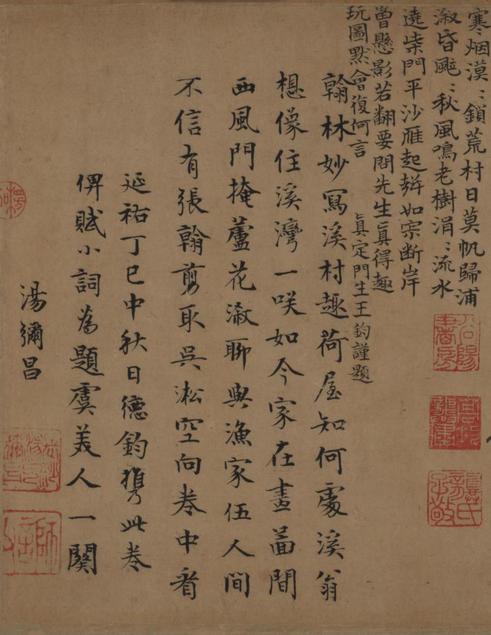 寒烟漠〻鎖荒村日莫帆歸浦
溆昏颭〻秋風鳴老樹涓〻流水
遶柴門平沙雁起勢如奔断岸
罾懸影若翻要問先生真得趣
玩圖默會復何言
真定門生王鈞謹題
翰林妙寫溪村趣荷屋知何處溪翁
想像住溪灣一咲如今家在畫啚間
西風門掩蘆花溆聊與漁家伍人間
不信有張翰剪取吳淞空向卷中看
延祐丁巳中秋日德鈞携此卷
俾賦小詞為題虞美人一闋
湯彌昌